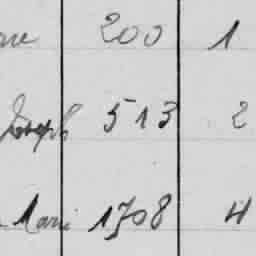 200 1
Joseph 513 2
Marie 1708 4